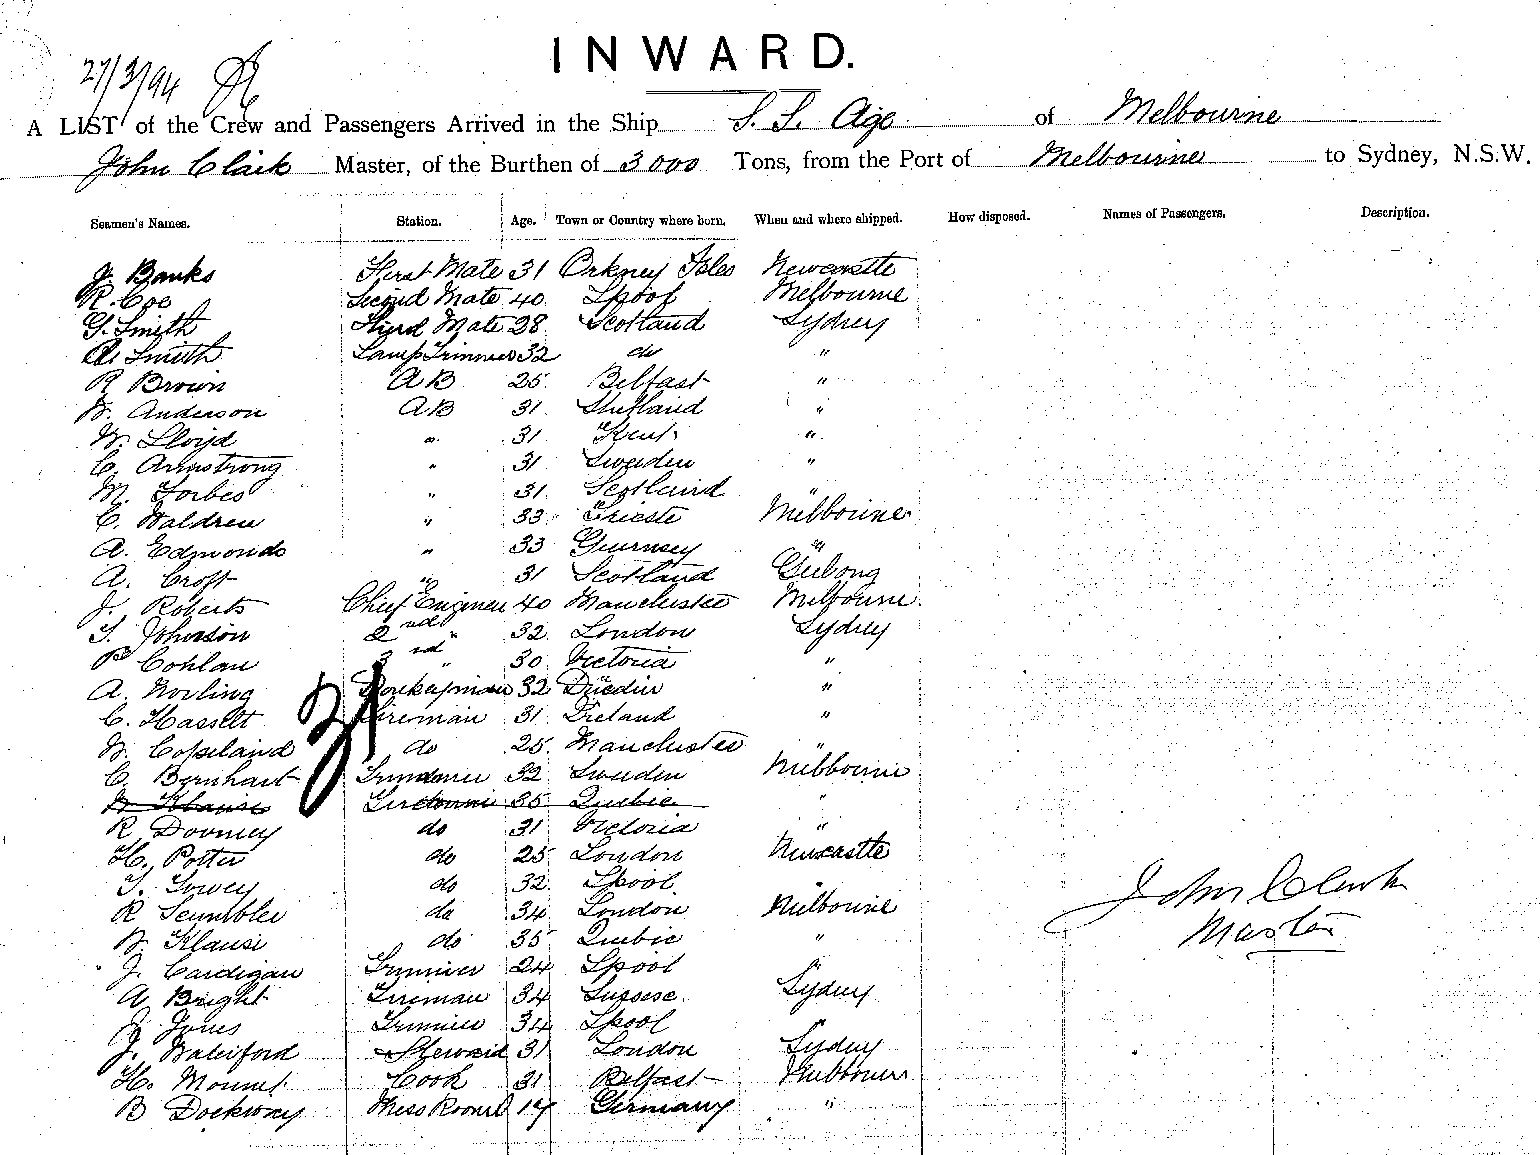 INWARD.
27/3/94
A LIST of the Crew and Passengers Arrived in the Ship S. S. Age of Melbourne
John Clark Master, of the Burthen of 3000 Tons, from the Port of Melbourne to Sydney, N.S.W.
Seamen's Names. Station. Age. Town or Country where born. When and where shipped. How disposed. Names of Passengers. Description.
J. Banks First Mate 31 Orkney Isles Newcastle
R. Coe Second Mate 40 Lpool Melbourne
G. Smith Third Mate 28 Scotland Sydney
A. Smith Lamp Trimmer 32 do "
R Brown AB 25 Belfast "
W. Anderson AB 31 Shetland "
W. Lloyd " 31 Kent "
C. Armstrong " 31 Sweden "
M. Forbes " 31 Scotland "
C. Waldren " 33 Trieste Melbourne
A. Edmonds " 33 Guernsey "
A. Croft " 31 Scotland Geelong
J. Roberts Chief Engineer 40 Manchester Melbourne
T. Johnson 2nd " 32 London Sydney
P Cohlan 3rd " 30 Victoria "
A. Norling 32 "
C. Hasselt Fireman 31 Ireland "
W. Copeland do 25 Manchester "
C. Bernhart Trimmer 32 Sweden Melbourne
W Klause 35 Quebic "
R Doomey do 31 Victoria "
H. Potter do 25 London Newcastle
T. Lowey do 32 Lpool "
R Scumbler do 34 London Melbourne
W. Klause do 35 Quebic "
J. Cardigan Trimmer 24 Lpool "
A Bright Fireman 34 Sussex Sydney
J. Jones Trimmer 34 Lpool "
J. Waterford Steward 31 London Sydney
H. Mount Cook 31 Belfast Melbourne
B Dockway Mess Room 17 Germany "
31
John Clark
Master